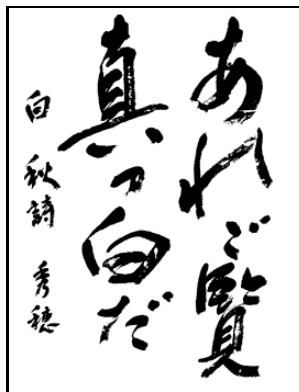 あれご覧
真っ白だ
白秋詩 秀穂